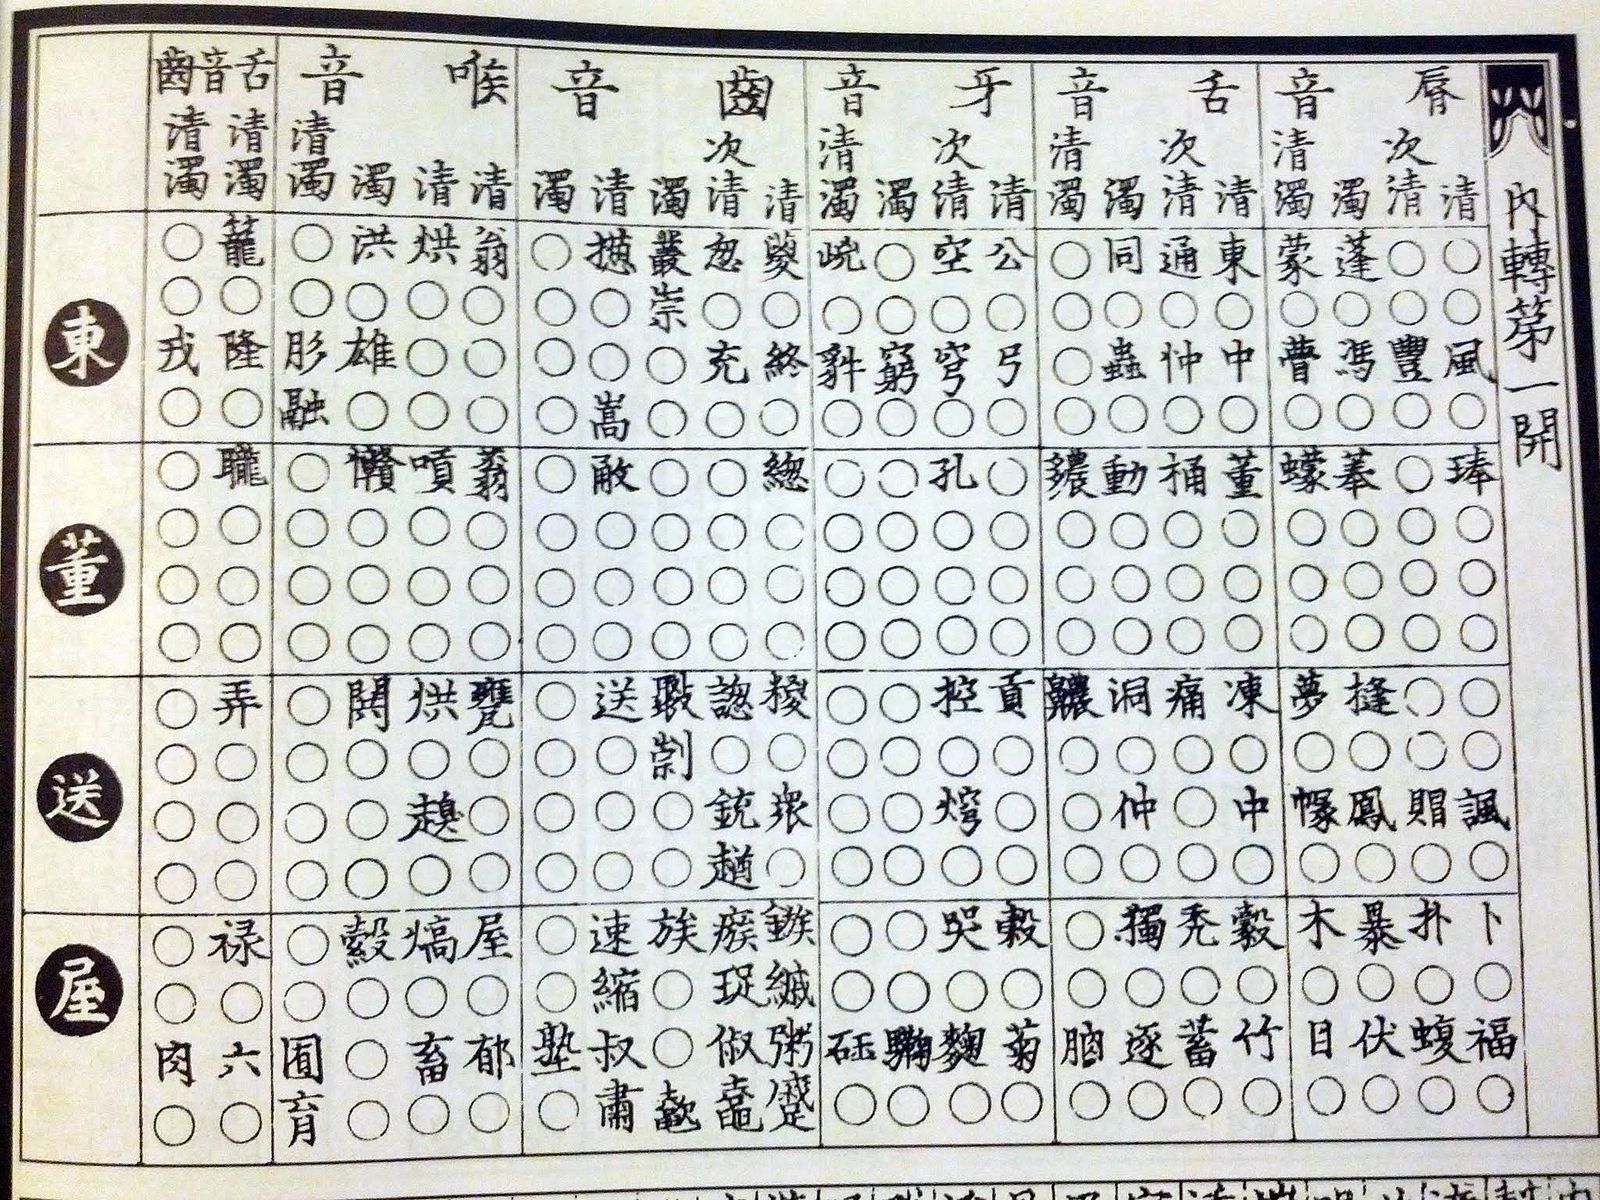 內轉第一開
脣音
清 ○○風○ 琫○○○ ○○諷○ 卜○福○
次清 ○○豐○ ○○○○ ○○賵○ 扑○蝮○
濁 蓬○馮○ 菶○○○ ○鳳○ 暴○伏○
清濁 蒙○瞢○ 蠓○○○ 夢○幪○ 木○目○
舌音
清 東○中○ 董○○○ 凍○中○ 縠○竹○
次清 通○忡○ 桶○○○ 痛○○○ 禿○蓄○
濁 同○蟲○ 動○○○ 洞○仲○ 獨○逐○
清濁 ○○○○ ○○○ 齈○○○ ○○○
牙音
清 公○弓○ ○○○○ 貢○○○ 穀○菊○
次清 空○穹○ 孔○○○ 控○焪○ 哭○麴○
濁 ○○窮○ ○○○○ ○○○○ ○○○
清濁 ○○ ○○○○ ○○○○ ○○砡○
齒音
清 葼○終○ 總○○○ 糉○衆○ 鏃緎粥蹙
次清 怱○充○ ○○○○ 謥○銃趥 瘯珿俶鼀
濁 叢崇○○ ○○○○ ○○ 族○○歜
清 ○○嵩 ○○○ 送○○○ 速縮叔肅
濁 ○○○○ ○○○○ ○○○○ ○○塾○
喉音
清 翁○○○ 蓊○○○ 甕○○○ 屋○郁○
清 烘○○○ 嗊○○○ 烘○○ 熇○畜○
濁 洪○雄○ ○○○ 閧○○○ 縠○○○
清濁 ○○肜融 ○○○○ ○○○○ ○○囿育
舌音齒
清濁 籠○隆○ 曨○○○ 弄○○○ 禄○六○
清濁 ○○戎○ ○○○○ ○○○○ ○○肉○
東
董
送
屋